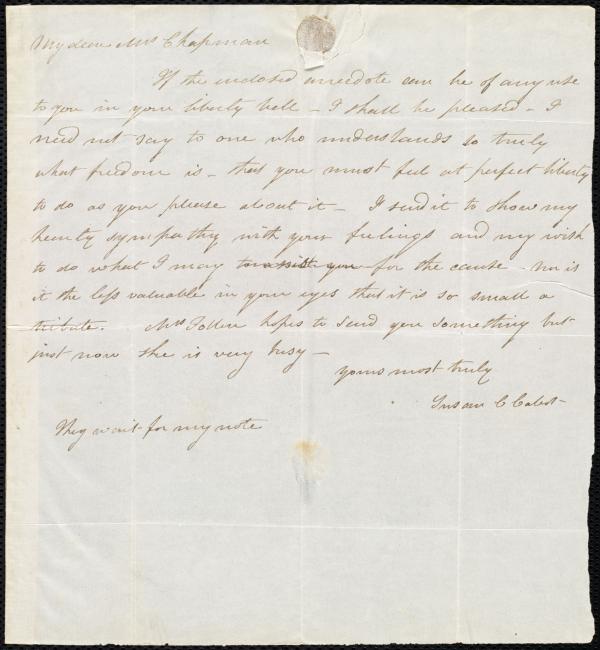 My dear Mrs Chapman
If the enclosed anecdote can be of any use
to you in your liberty bell – I shall be pleased – I
need not say to one who understands so truly
what freedom is – that you must feel at perfect liberty
to do as you please about it – I send it to show my
hearty sympathy with your feelings and my wish
to do what I may to assist you for the cause – nor is
it the less valuable in your eyes that it is so small a
tribute. Mrs Follen hopes to send you something but
just now she is very busy –
yours most truly
Susan C Cabot –
They wait for my note